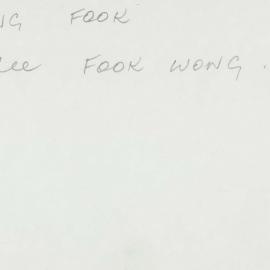 NG FOOK
Lee FOOK WONG.